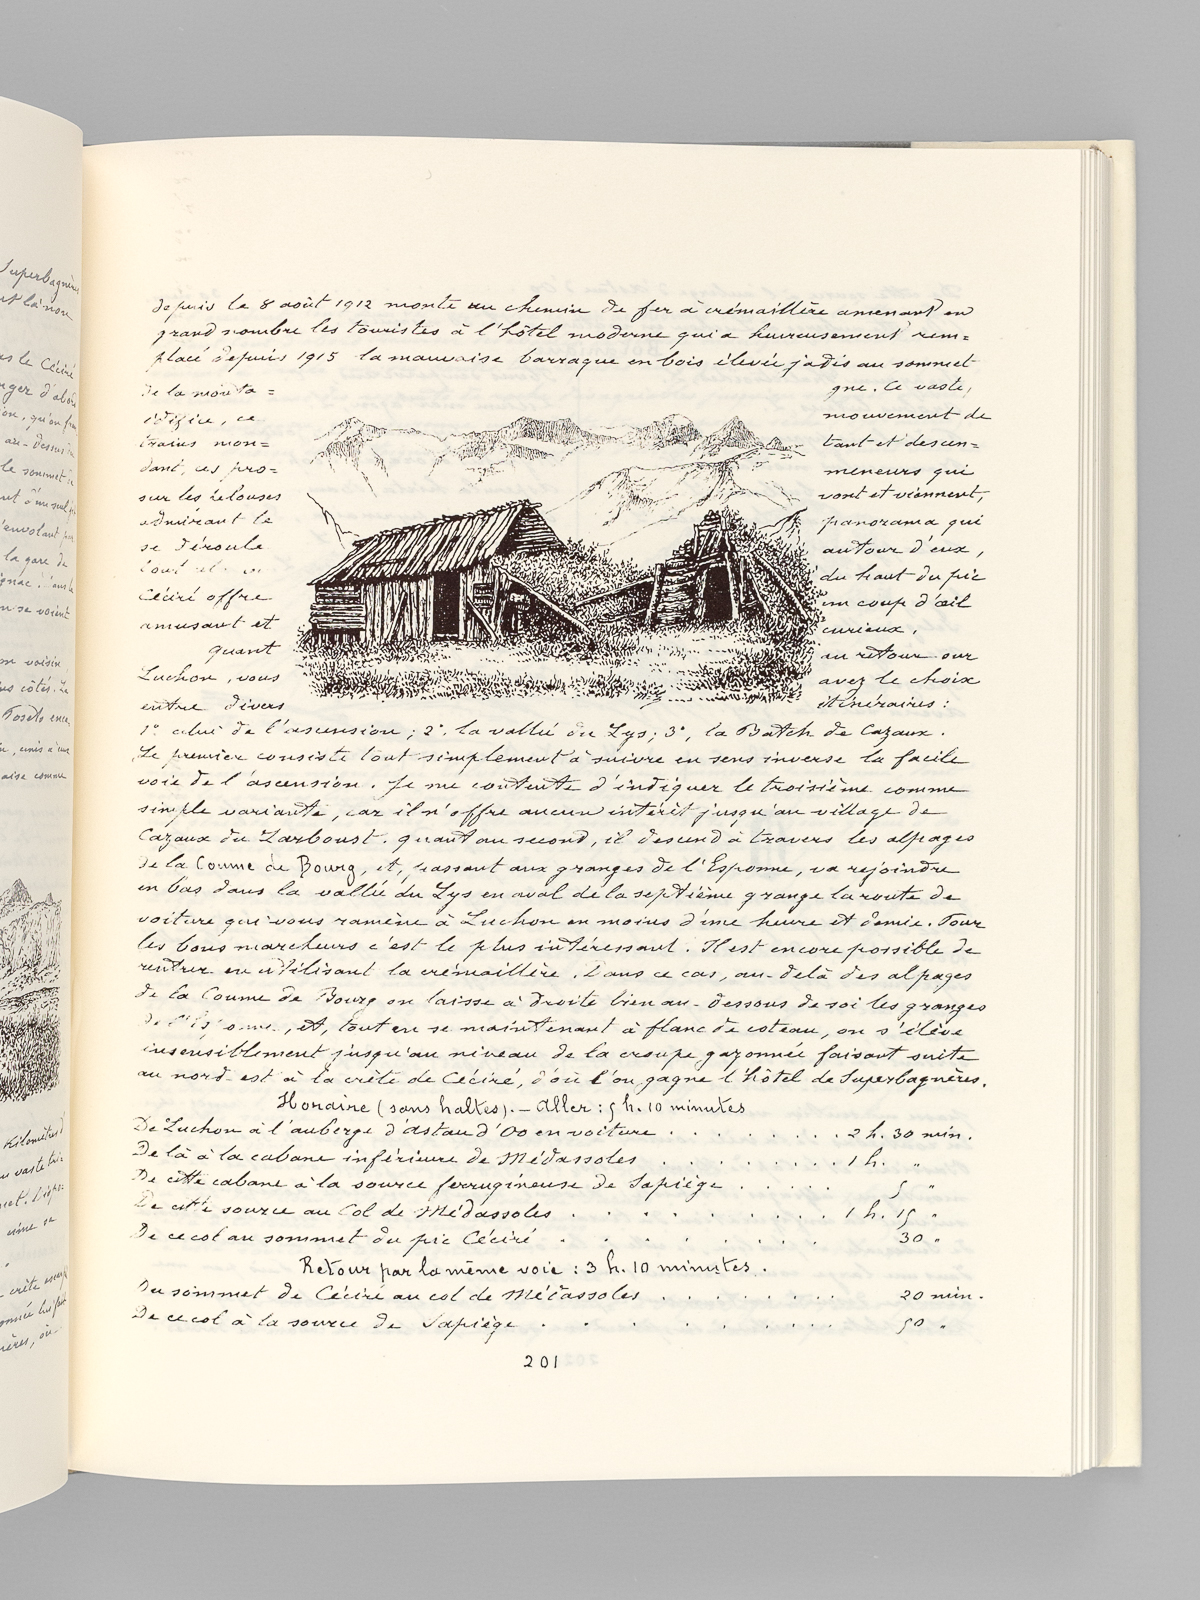 depuis le 8 août 1912 monte un chemin de fer à crémaillère amenant en
grand nombre les touristes à l'hôtel moderne qui a heureusement rem=
placé depuis 1915 la mauvaise barraque en bois élevée jadis au sommet
de la monta= gne. Ce vaste,
édifice, ce mouvement de
trains mon= tant et descen=
dant, ces pro= meneurs qui
sur les pelouses vont et viennent,
admirant le panorama qui
se déroule autour d'eux,
tout du haut du pic
Céciré offre un coup d'œil
amusant et curieux.
quant au retour sur
Luchon, vous avez le choix
entre divers itinéraires :
1° celui de l'ascension ; 2°. la vallée du Lys ; 3°, la Batch de Cazaux.
Le premier consiste tout simplement à suivre en sens inverse la facile
voie de l'ascension. Je me contente d'indiquer le troisième comme
simple variante, car il n'offre aucun intérêt jusqu'au village de
Cazaux du Larboust. quant au second, il descend à travers les alpages
de la Coume de Bourg, et, passant aux granges de l'Esponne, va rejoindre
en bas dans la vallée du Lys en aval de la septième grange la route de
voiture qui vous ramène à Luchon en moins d'une heure et demie. Pour
les bons marcheurs c'est le plus intéressant. Il est encore possible de
rentrer en utilisant la crémaillère. Dans ce cas, au-delà des alpages
de la Coume de Bourg on laisse à droite bien au-dessous de soi les granges
de l'Esponne, et, tout en se maintenant à flanc de coteau, on s'élève
insensiblement jusqu'au niveau de la croupe gazonnée faisant suite
au nord-est à la crête de Céciré, d'où l'on gagne l'hôtel de Superbagnères.
Horaire (sans haltes). — Aller : 5 h. 10 minutes
De Luchon à l'auberge d'Astau d'Oo en voiture . . . . . . . . 2 h. 30 min.
De là à la cabane inférieure de Médassoles . . . . . . . . . 1 h. "
De cette cabane à la source ferrugineuse de Sapiège . . . . . 5 "
De cette source au Col de Médassoles . . . . . . . . 1 h. 15 "
De ce col au sommet du pic Céciré . . . . . . . . 30 "
Retour par la même voie : 3 h. 10 minutes.
Du sommet de Céciré au col de Médassoles . . . . . . . 20 min.
De ce col à la source de Sapiège . . . . . . . . . 50 "
201